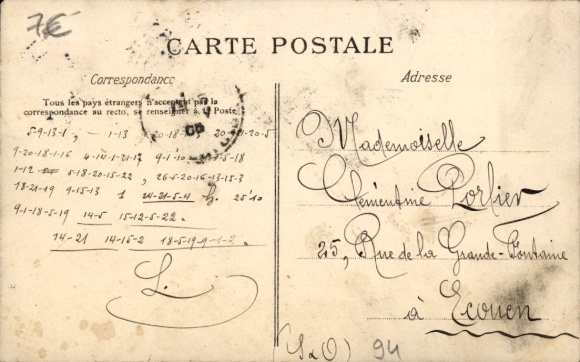 7€
CARTE POSTALE
Correspondance
Adresse
Tous les pays étrangers n'acceptent pas la
correspondance au recto, se renseigner à la Poste
5-9-13-1, - 1-13 20-18
9-20-18-1-16 4-14-1-21-17 9-1-10
1-12 5-18-20-15-22, 26-5-20-16-13-15-3
18-21-19 9-15-13 1 24-21-5-4 h. 25'10
9-1-18-5-19 14-5 15-12-5-22.
14-21 14-15-2 18-5-19-9-1-2.
L.
Mademoiselle
Clémentine Porlier
25, Rue de la Grande-Fontaine
à Ecouen
(S&O) 94